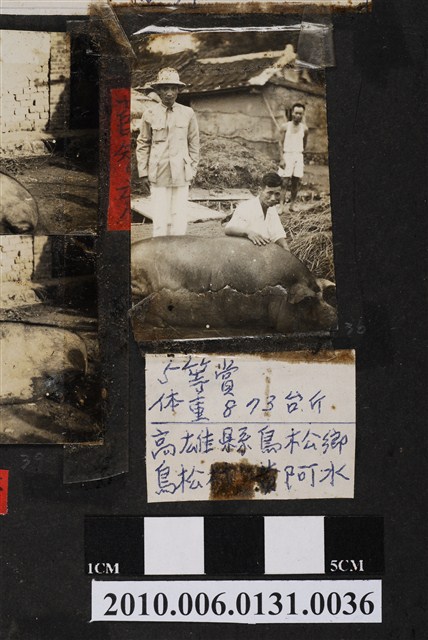 36
5等賞
体重 873台斤
高雄縣鳥松鄉
鳥松村 阿水
39
1CM 5CM
2010.006.0131.0036